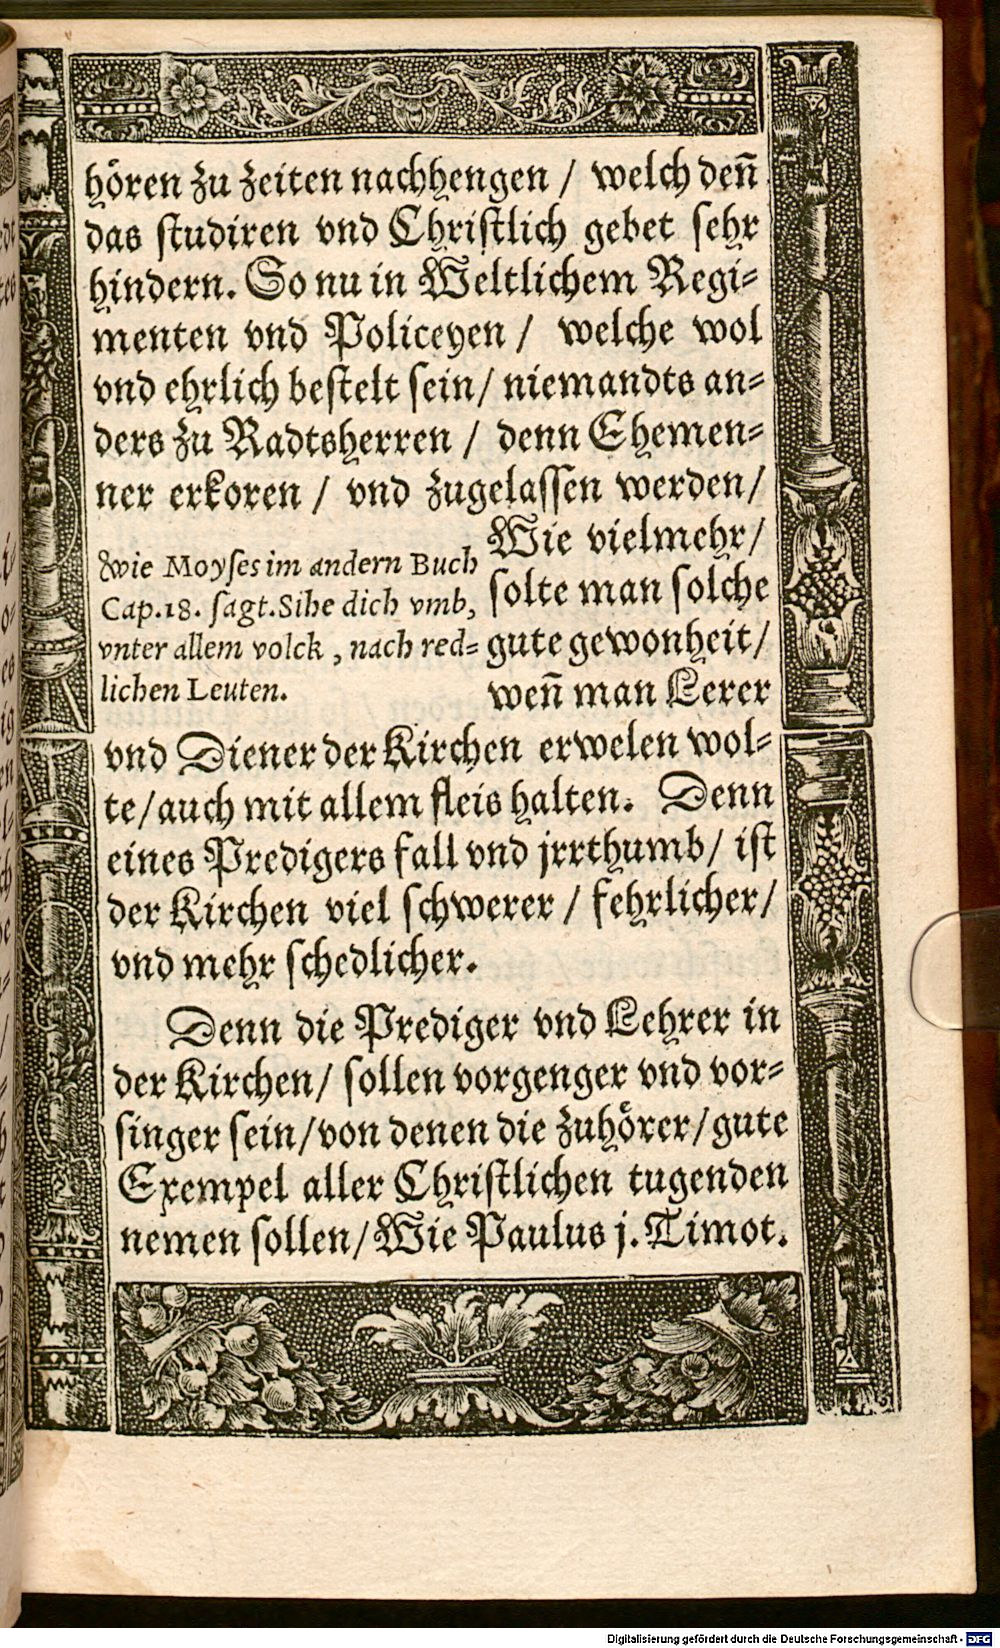 hören zu zeiten nachhengen / welch deñ
das studiren vnd Christlich gebet sehr
hindern. So nu in Weltlichem Regi⸗
menten vnd Policeyen / welche wol
vnd ehrlich bestelt sein / niemandts an⸗
ders zu Radtsherren / denn Ehemen⸗
ner erkoren / vnd zugelassen werden /
Wie vielmehr /
solte man solche
gute gewonheit /
weñ man Lerer
Wie Moyses im andern Buch
Cap.18. sagt. Sihe dich vmb,
vnter allem volck, nach red⸗
lichen Leuten.
vnd Diener der Kirchen erwelen wol⸗
te / auch mit allem fleis halten. Denn
eines Predigers fall vnd jrrthumb / ist
der Kirchen viel schwerer / fehrlicher /
vnd mehr schedlicher.
Denn die Prediger vnd Lehrer in
der Kirchen / sollen vorgenger vnd vor⸗
singer sein / von denen die zuhörer / gute
Exempel aller Christlichen tugenden
nemen sollen / Wie Paulus j. Timot.
Digitalisierung gefördert durch die Deutsche Forschungsgemeinschaft - DFG